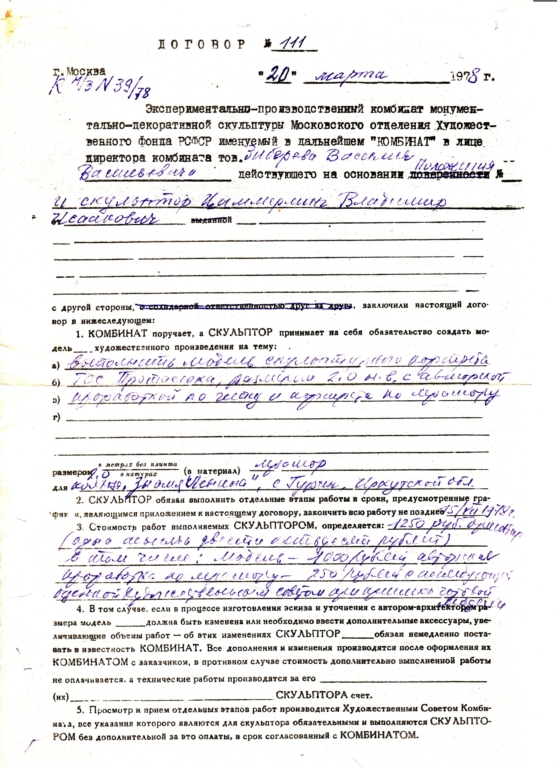 ДОГОВОР № 111
г. Москва "20" марта 1978 г.
К М/З N 39/78
Экспериментально-производственный комбинат монумен-
тально-декоративной скульптуры Московского отделения Художест-
венного фонда РСФСР именуемый в дальнейшем "КОМБИНАТ" в лице
директора комбината тов. Василия
Васильевича действующего на основании доверенности № Положения
и скульптор Циммерлинг Владимир
Исаакович выданной
с другой стороны, с солидарной ответственностью друг за друга, заключили настоящий дого-
вор в нижеследующем:
1. КОМБИНАТ поручает, а СКУЛЬПТОР принимает на себя обязательство создать мо-
дель художественного произведения на тему:
а) выполнить модель скульптурного портрета
б) ГСС размером 2,0 н.в. с авторской
в) проработкой по и по мрамору
г)
размером 2,0 в метрах без плинта в натурах (в материал) мрамор
для "Знамя Ленина", с Иркутской обл.
2. СКУЛЬПТОР обязан выполнить отдельные этапы работы в сроки, предусмотренные гра-
фик и, являющимся приложением к настоящему договору, закончить всю работу не позднее 15/XII 1978 г.
3. Стоимость работ выполняемых СКУЛЬПТОРОМ, определяется: 1250 руб.
(одна тысяча двести пятьдесят рублей)
в том числе: модель – 1000 рублей авторская
проработка по мрамору – 250 рублей с
оценкой художественным советом при готовой
модели
4. В том случае, если в процессе изготовления эскиза и уточнения с автором-архитектором ра-
змера модель должна быть изменена или необходимо ввести дополнительные аксессуары, уве-
личивающие объемы работ — об этих изменениях СКУЛЬПТОР обязан немедленно поста-
вать в известность КОМБИНАТ. Все дополнения и изменения производятся после оформления их
КОМБИНАТОМ с заказчиком, в противном случае стоимость дополнительно выполненной работы
не оплачивается, а технические работы производятся за его
(их) СКУЛЬПТОРА счет.
5. Просмотр и прием отдельных этапов работ производится Художественным Советом Комби-
ната, все указания которого являются для скульптора обязательными и выполняются СКУЛЬПТО-
РОМ без дополнительной за это оплаты, в срок согласованный с КОМБИНАТОМ.